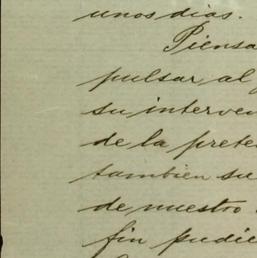 unos dias.
Piensa
pulsar al
su interven
de la prete
tambien su
de nuestro
fin pudie